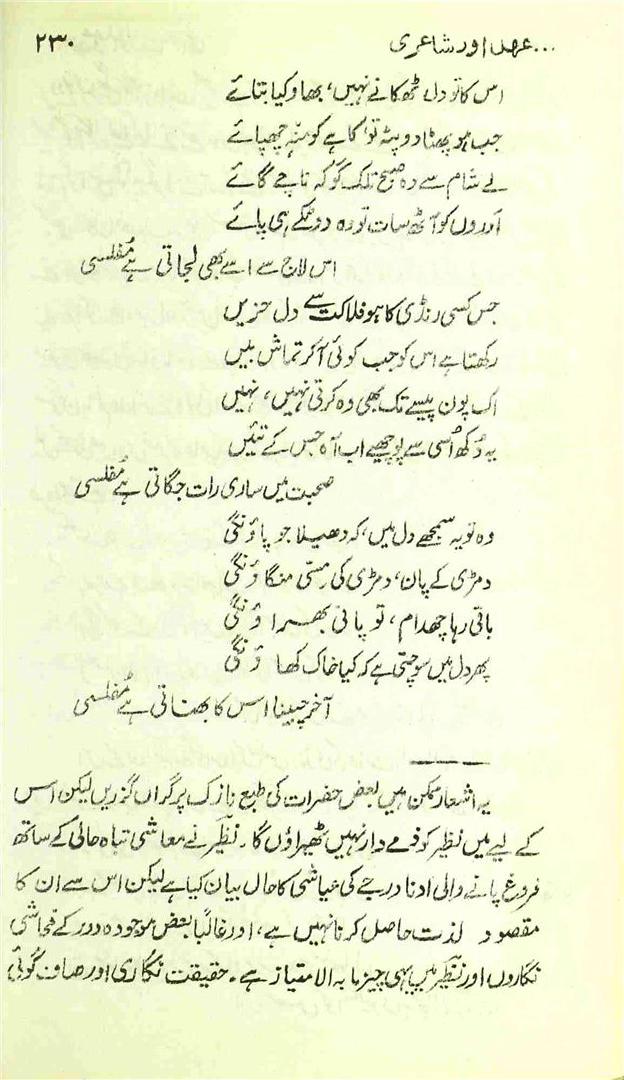 ...عہد اور شاعری ۲۳۰
اس کا تو دل ٹھکانے نہیں، بھاو کیا بتائے
جب ہو پھٹا دوپٹہ تو کاہے کو منہ چھپائے
لے شام سے وہ صبح تلک گو کہ ناچے گائے
اوروں کو آٹھ سات تو وہ دو ٹکے ہی پائے
اس لاج سے اسے بھی لجاتی ہے مُفلسی
جس کسی رنڈی کا ہو فلاکت سے دل حزیں
رکھتا ہے اس کو جب کوئی آکر تماش بیں
اک پون پیسے تک بھی وہ کرتی نہیں، نہیں
یہ دُکھ اُسی سے پوچھیے اب آہ جس کے تئیں
صحبت میں ساری رات جگاتی ہے مفلسی
وہ تو یہ سمجھے دل میں، کہ دھیلا جو پاؤنگی
دمڑی کے پان، دمڑی کی مِسّی منگاؤنگی
باقی رہا چھدام، تو پانی بھراؤنگی
پھر دل میں سوچتی ہے کہ کیا خاک کھاؤنگی
آخر چبینا اس کا بھناتی ہے مُفلسی
یہ اشعار ممکن ہیں بعض حضرات کی طبع نازک پر گراں گزریں لیکن اس
کے لیے میں نظیر کو ذمے دار نہیں ٹھیراؤں گا۔ نظیر نے معاشی تباہ حالی کے ساتھ
فروغ پانے والی ادنا درجے کی عیاشی کا حال بیان کیا ہے لیکن اس سے ان کا
مقصود لذت حاصل کرنا نہیں ہے، اور غالباً بعض موجودہ دور کے فحاشی
نگاروں اور نظیر میں یہی چیز مابہ الامتیاز ہے۔ حقیقت نگاری اور صاف گوئی